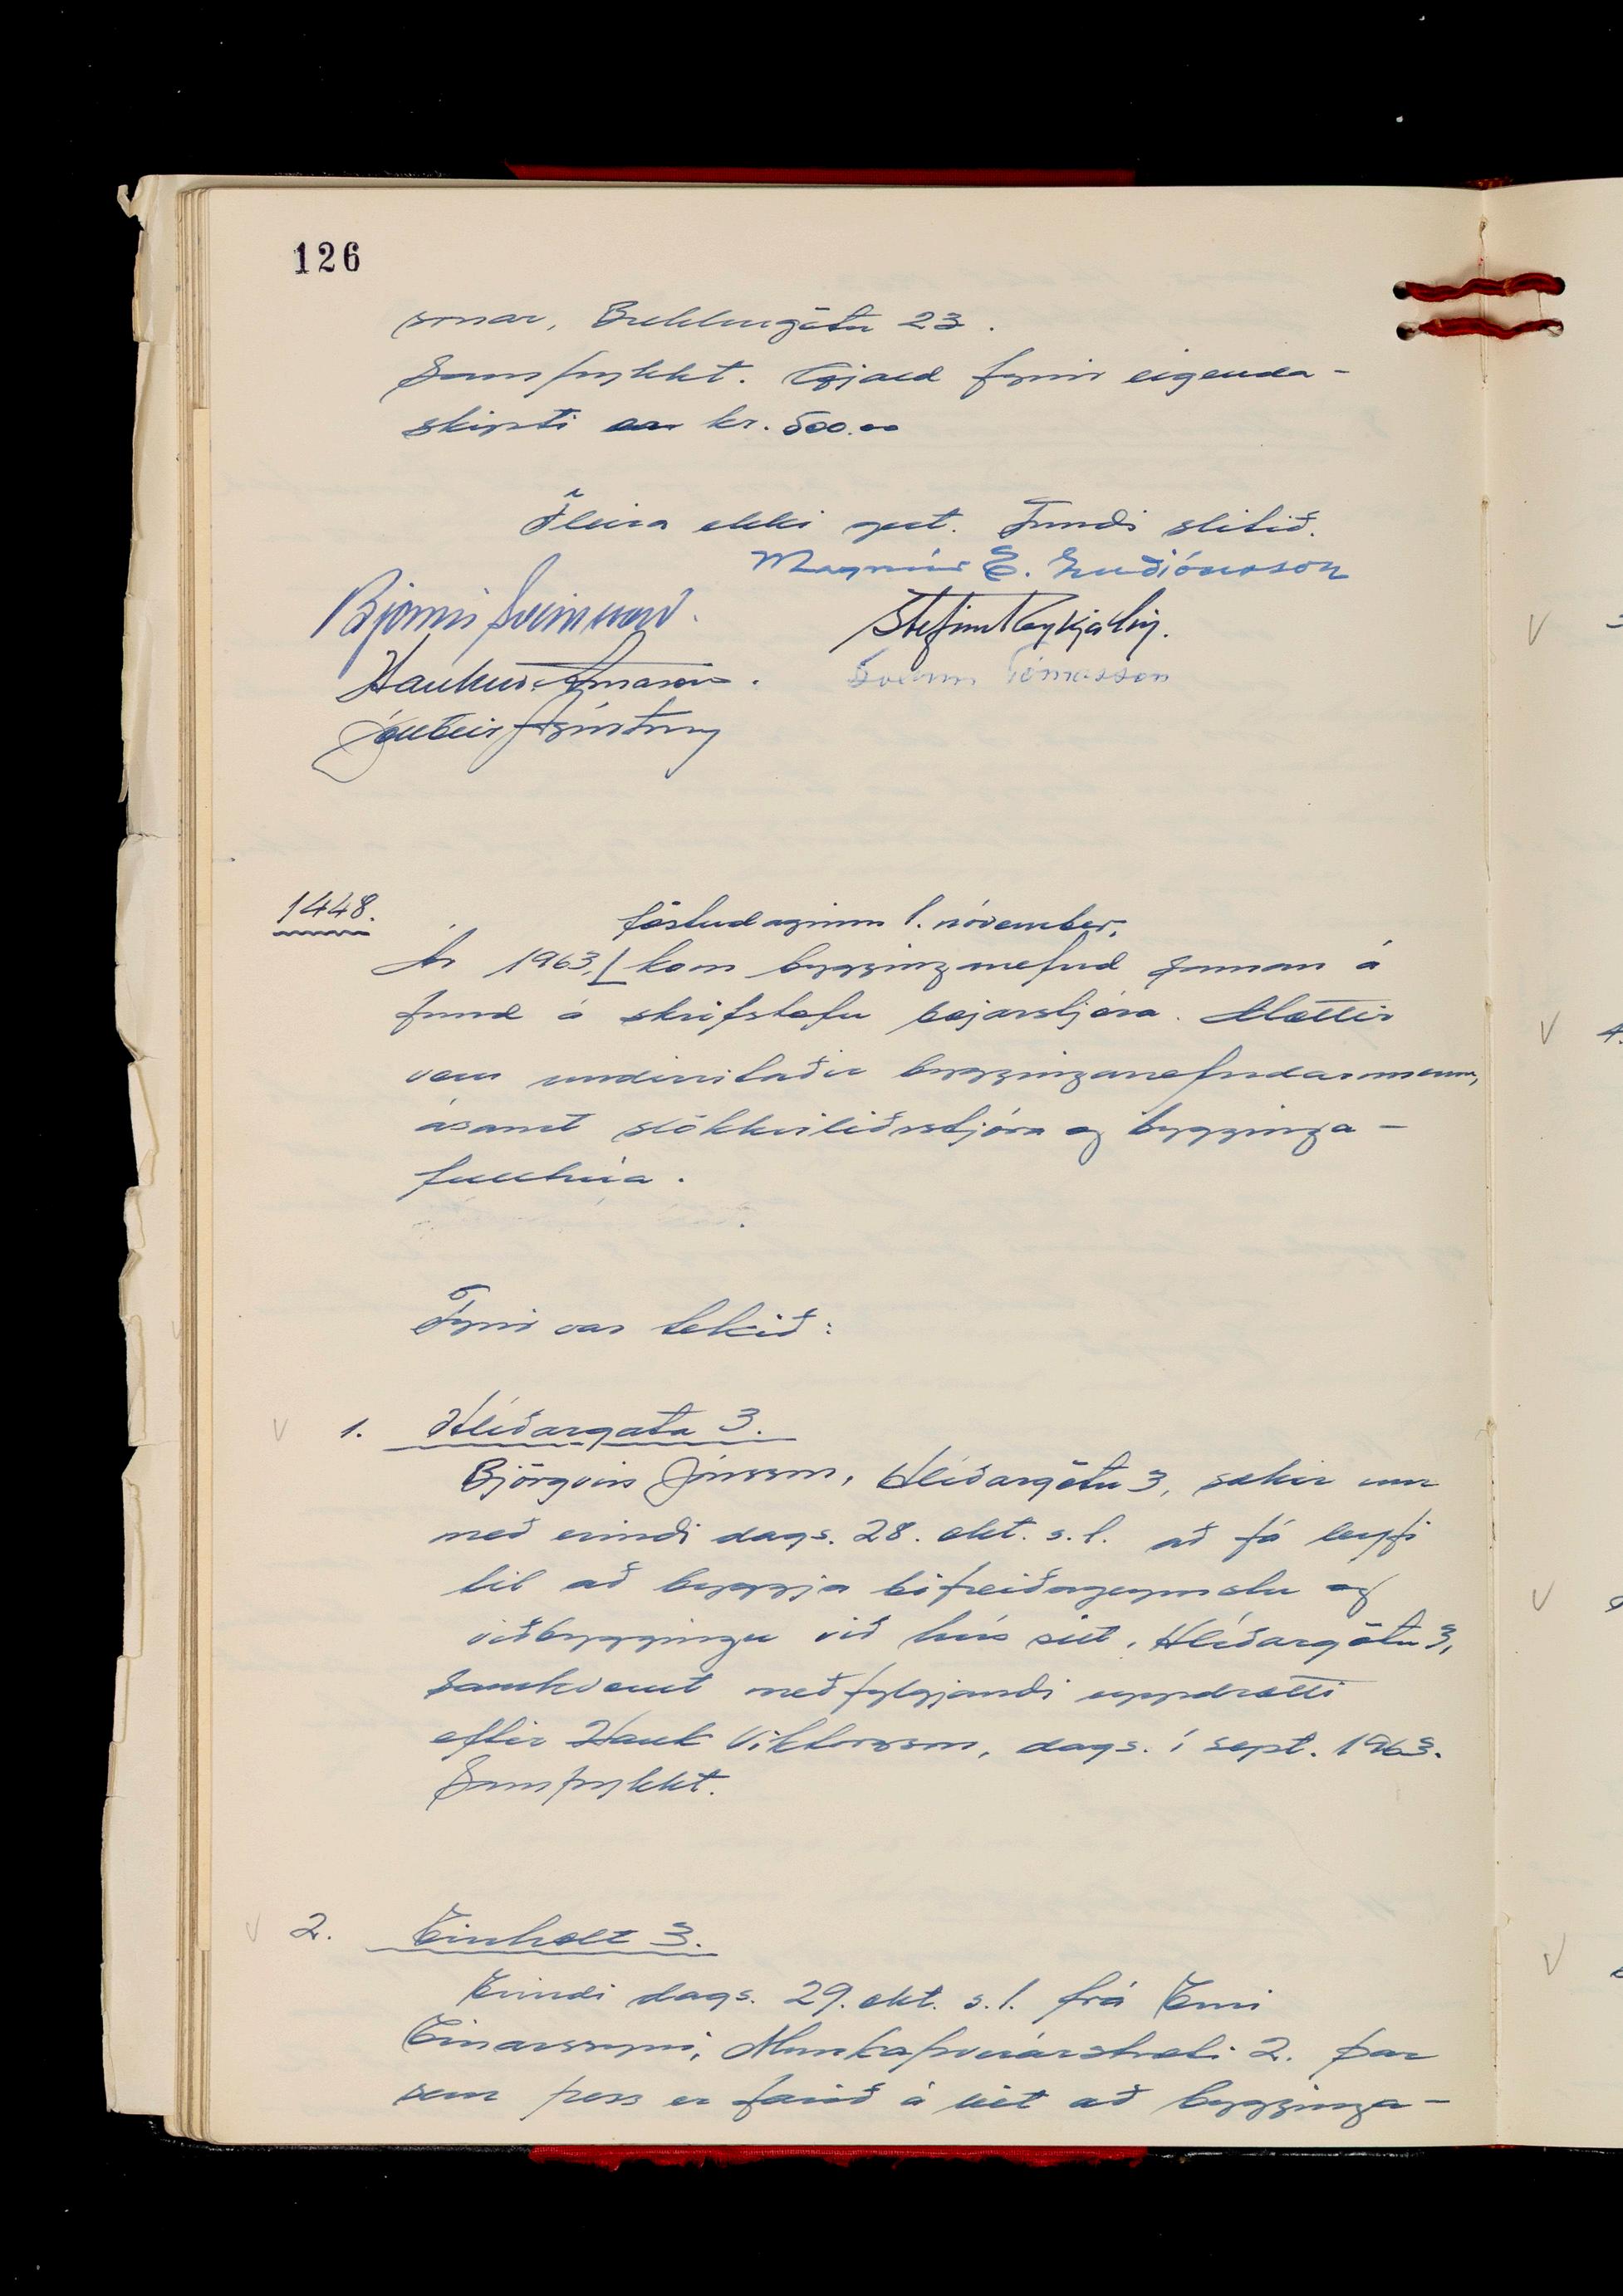 126
sonar, Brekkugötu 23.
Samþykkt. Gjald fyrir eigenda-
skipti kr. 500.00
Fleira ekki gert. Fundi slitið.
Magnús E. Guðjónsson
Bjarni Sveinsson.
Stefán Reykjalín.
Haukur Árnason.
Sveinn Tómasson
1448.
föstudaginn 1. nóvember,
Ár 1963, kom bygginganefnd saman á
fund á skrifstofu bæjarstjóra. Mættir
voru undirritaðir bygginganefndarmenn,
ásamt slökkviliðsstjóra og bygginga-
fulltrúa.
Fyrir var tekið:
V 1. Hlíðargata 3.
Björgvin Jónsson, Hlíðargötu 3, sækir um
með erindi dags. 28. okt. s.l. að fá leyfi
til að byggja bifreiðageymslu og
viðbyggingu við hús sitt, Hlíðargötu 3,
samkvæmt meðfylgjandi uppdrætti
eftir Hauk Viktorsson, dags. í sept. 1963.
Samþykkt.
V 2. Einholt 3.
Erindi dags. 29. okt. s.l. frá Erni
Einarssyni, Munkaþverárstræti 2. þar
sem þess er farið á leit að bygginga-